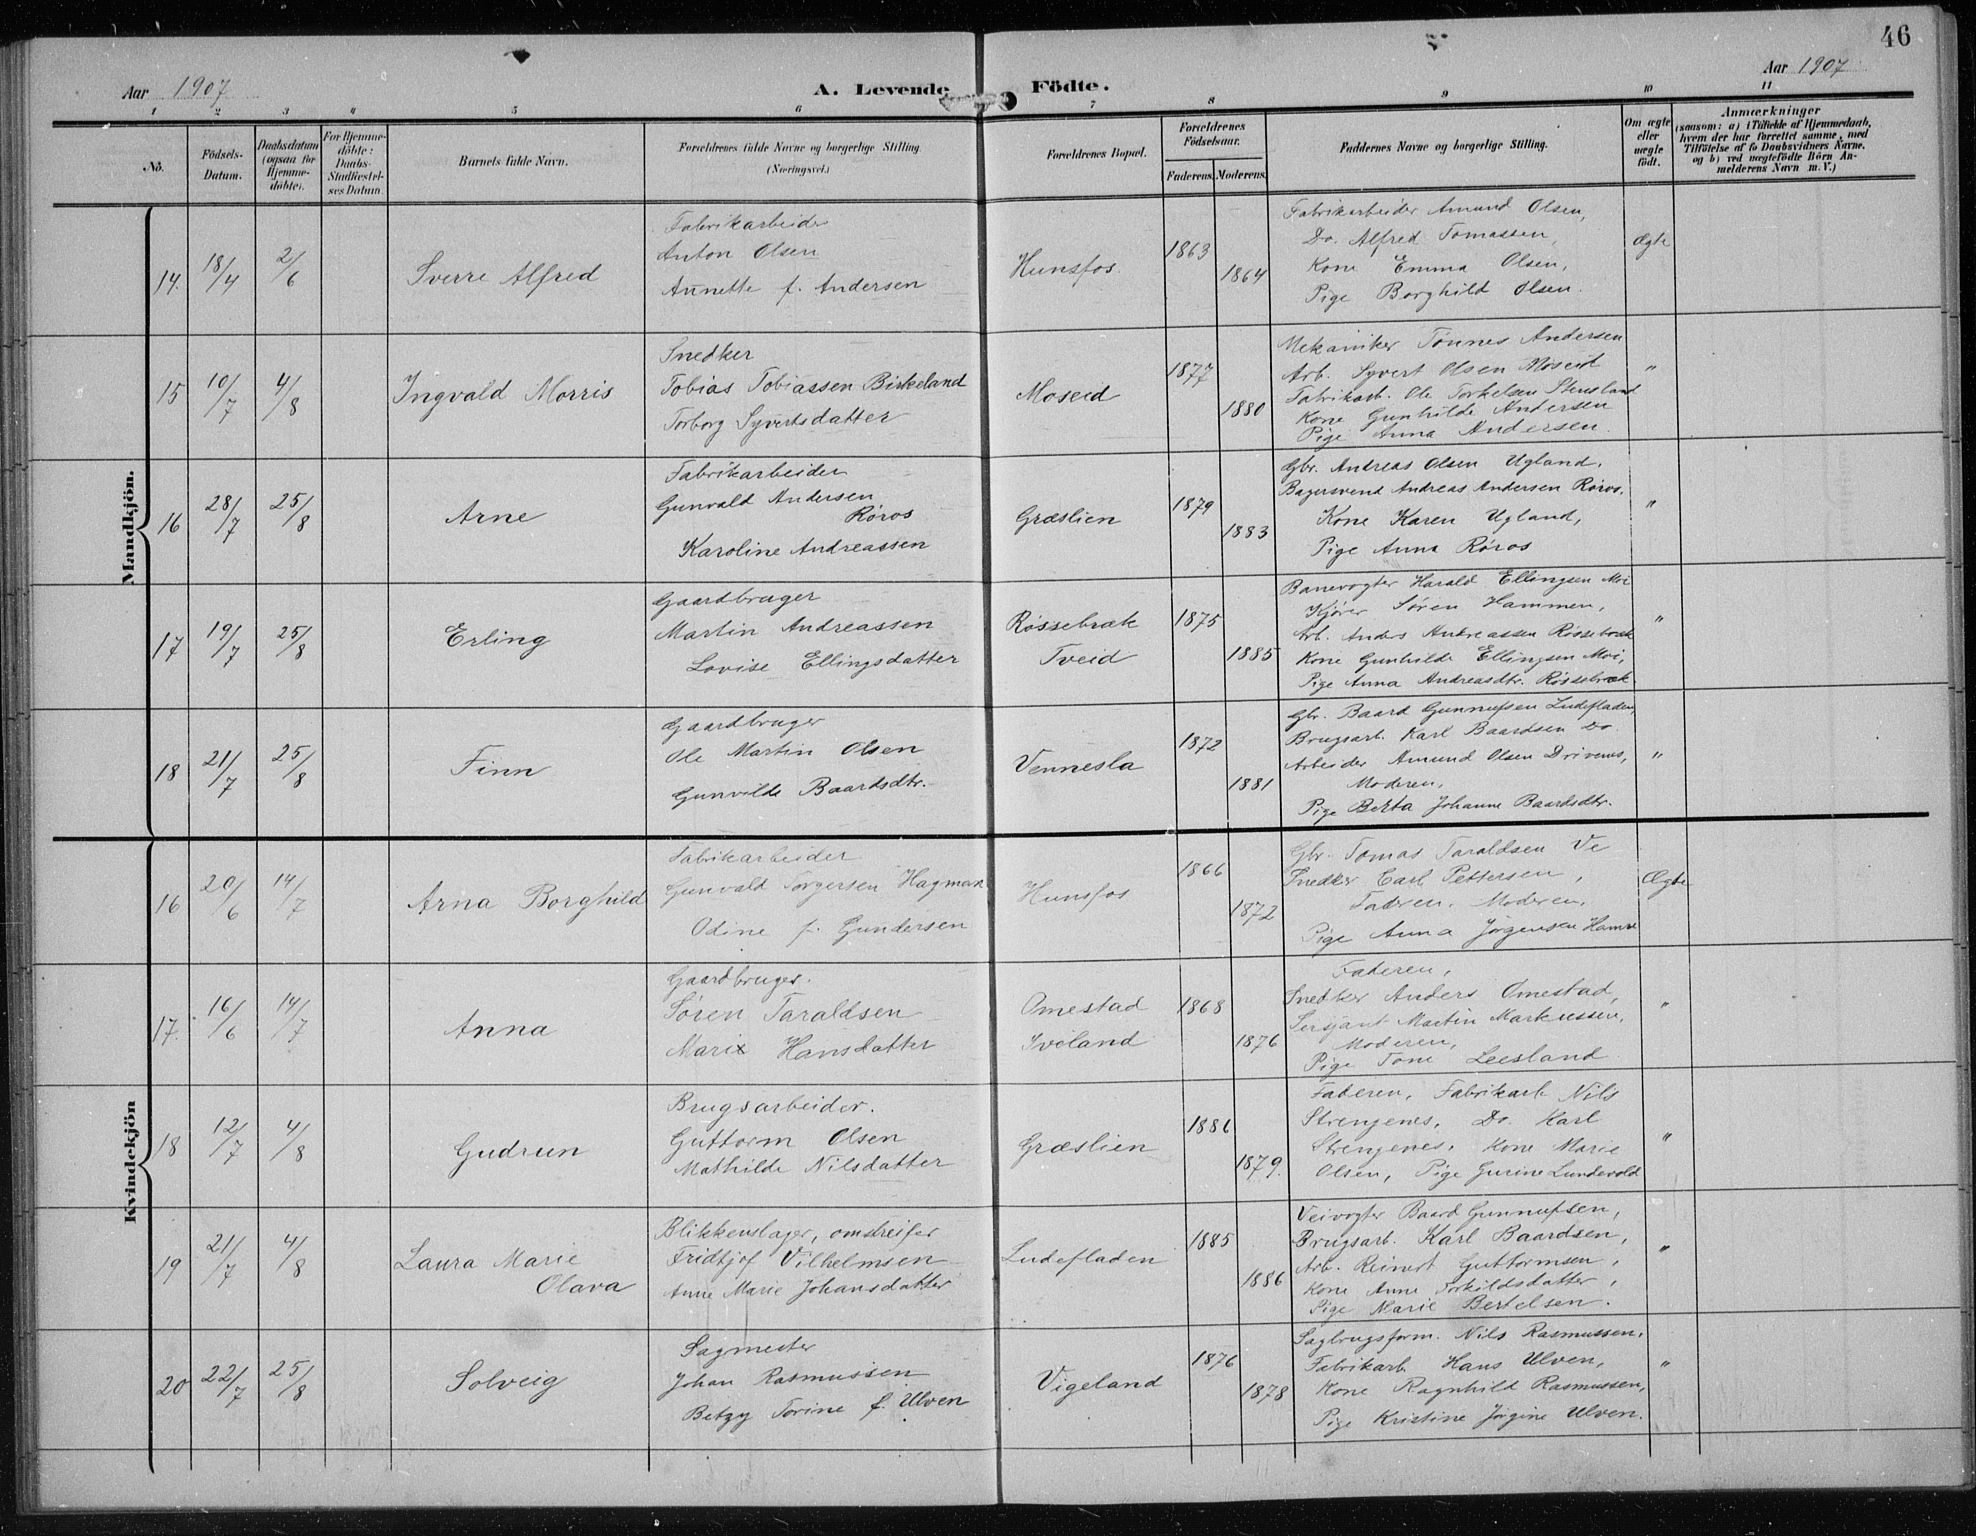 46
Aar 1907
A. Levende Födte.
Aar 1907
1 2 3 4 5 6 7 8 9 10 11
No.
Födsels-
Datum.
Daabsdatum
(ogsaa for
Hjemme-
döbte).
For Hjemme-
döbte:
Daabs-
Stadfæstel-
ses Datum.
Barnets fulde Navn.
Forældrenes fulde Navne og borgerlige Stilling.
(Næringsvei.)
Forældrenes Bopæl.
Forældrenes
Födselsaar.
Faderens. Moderens.
Faddernes Navne og borgerlige Stilling.
Om ægte
eller
uægte
födt.
Anmærkninger
(saasom: a) i Tilfælde af Hjemmedaab,
hvem der har forrettet samme, med
Tilföielse af to Daabsvidners Navne.
og b) ved uægtefödte Börn An-
melderens Navn m. V.)
Mandkjön.
14. 18/4 2/6
Sverre Alfred
Fabrikarbeider
Anton Olsen
Annette f. Andersen
Hunsfos
1863
1864
Fabrikarbeider Amund Olsen,
Do. Alfred Tomassen,
Kone Emma Olsen,
Pige Borghild Olsen.
Ægte
15 10/7 4/8
Ingvald Morris
Snedker
Tobias Tobiassen Birkeland
Torborg Syvertsdatter
Moseid
1877
1880
Mekaniker Tønnes Andersen
Arb. Syvert Olsen Moseid
Fabrikarb. Ole Torkelsen Stensland
Kone Gunhilde Andersen
Pige Anna Andersen.
"
16 28/7 25/8
Arne
Fabrikarbeider
Gunvald Andersen
Røros
Karoline Andreassen
Græslien
1879
1883
Gbr. Andreas Olsen Ugland,
Bagersvend Andreas Andersen Røros.
Kone Karen Ugland,
Pige Anna Røros
"
17 19/7 25/8
Erling
Gaardbruger
Martin Andreassen
Lovise Ellingsdatter
Røssebræk
Tveid
1875
1885
Banevogter Harald Ellingsen Moi
Kjører Søren Hammen,
Arb. Anders Andreassen Røssebræk
Kone Gunhilde Ellingsen Moi,
Pige Anna Andreasdtr. Røssebræk
"
18 21/7 25/8
Finn
Gaardbruger
Ole Martin Olsen
Gunvilde Baardsdtr.
Vennesla
1872
1881
Gbr. Baard Gunnufsen Ludefladen,
Brugsarb. Karl Baardsen Do.
Arbeider Amund Olsen Drivenes,
Moderen,
Pige Berta Johanne Baardsdtr.
"
Kvindekjön
16 20/6 14/7
Arna Borghild
Fabrikarbeider
Gunvald Torgersen Hagman
Odine f. Gundersen
Hunsfos
1866
1872
Gbr. Tomas Taraldsen Ve
Snedker Carl Pettersen,
Faderen, Moderen,
Pige Anna Jørgensen Hamre
Ægte
17. 16/6 14/7
Anna
Gaardbruger.
Søren Taraldsen
Marie Hansdatter
Omestad
Iveland
1868
1876
Faderen,
Snedker Anders Omestad,
Sersjant Martin Markussen,
Moderen,
Pige Tone Leesland
"
18 12/7 4/8
Gudrun
Brugsarbeider.
Guttorm Olsen
Mathilde Nilsdatter
Græslien
1886
1879.
Faderen, Fabrikarb. Nils
Strengenes, Do. Karl
Strengenes. Kone Marie
Olsen, Pige Gurine Lundevold
"
19 21/7 4/8
Laura Marie
Olava
Blikkenslager, omstreifer
Fridtjof Vilhelmsen
Anne Marie Johansdatter
Ludefladen
1885
1886
Veivogter Baard Gunnufsen,
Brugsarb. Karl Baardsen,
Arb. Reinert Guttormsen,
Kone Anne Torkildsdatter,
Pige Marie Bertelsen.
"
20 22/7 25/8
Solveig
Sagmester
Johan Rasmussen
Betzy Torine f. Ulven
Vigeland
1876
1878
Sagbrugsform. Nils Rasmussen,
Fabrikarb. Hans Ulven,
Kone Ragnhild Rasmussen,
Pige Kristine Jørgine Ulven.
"